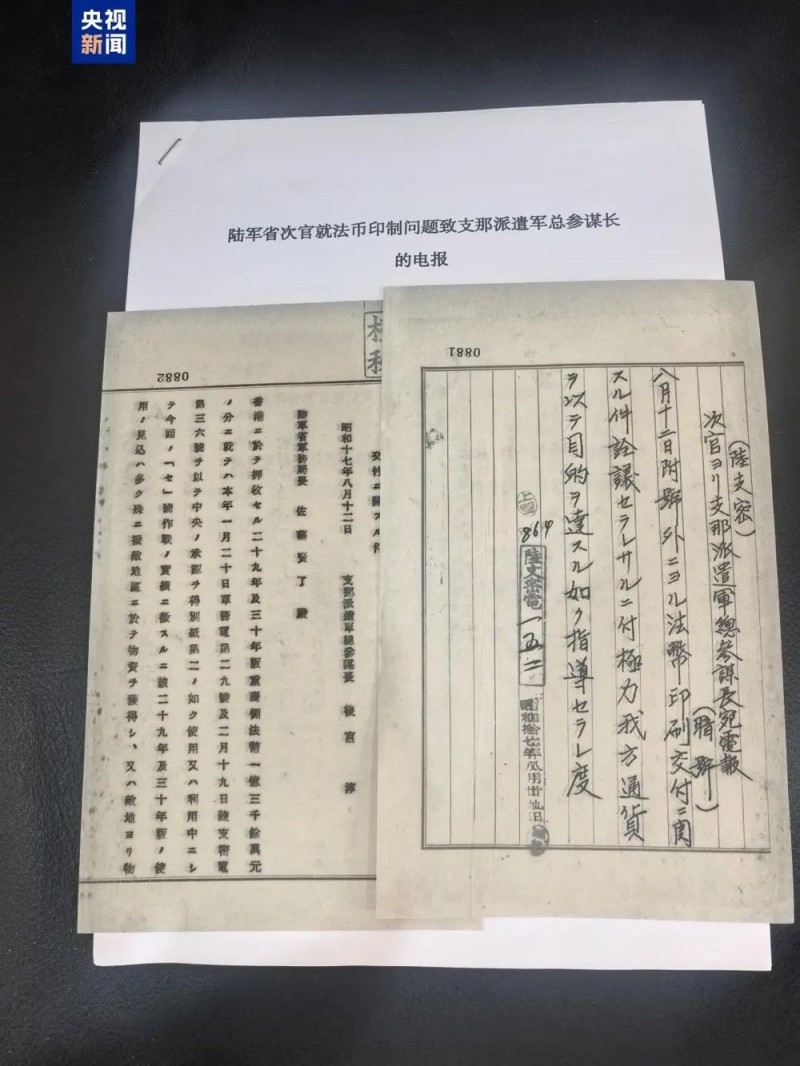 央视
新闻
陆军省次官就法币印制问题致支那派遣军总参谋长
的电报
0881
(陸支密)
次官ヨリ支那派遣軍總参謀長宛電報
(暗號)
八月十二日附號外ニヨル法幣印刷交付ニ関
スル件詮議セラレサルニ付極力我方通貨
ヲ以テ目的ヲ達スル如ク指導セラレ度
864
陸支密電一五二
0882
昭和十七年八月十二日
支那派遣軍總參謀長 後宮 淳
陸軍省軍務局長 佐藤賢了殿
香港ニ於テ押收セル二十九年及三十年版重慶側法幣一億三千餘萬元
ノ分ニ就テハ本年一月二十日軍務電第二九號及二月十九日陸支密電
第三六號ヲ以テ中央ノ承認ヲ得別紙第二ノ如ク使用又ハ利用中ニシ
テ今回ノ「セ」號作戰ノ實績ニ徴スルニ該二十九年及三十年版ノ使
用ノ見込ハ多ク殊ニ接敵地區ニ於テ物資ヲ獲得シ、又ハ敵地ヨリ物